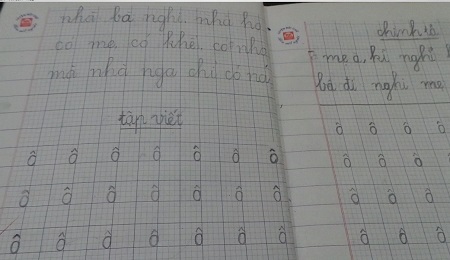 nhà bà nghỉ, nhà ho
co mẹ, có khế, có nho
mà nhà nga chỉ có na
tập viết
ô ô ô ô ô ô ô
ô ô ô ô ô ô ô
ô ô ô ô ô ô ô
chính tả
mẹ à, hà nghỉ
bà đi nghỉ mẹ
ô ô ô ô
ô ô ô ô
ô ô ô
ô ô ô